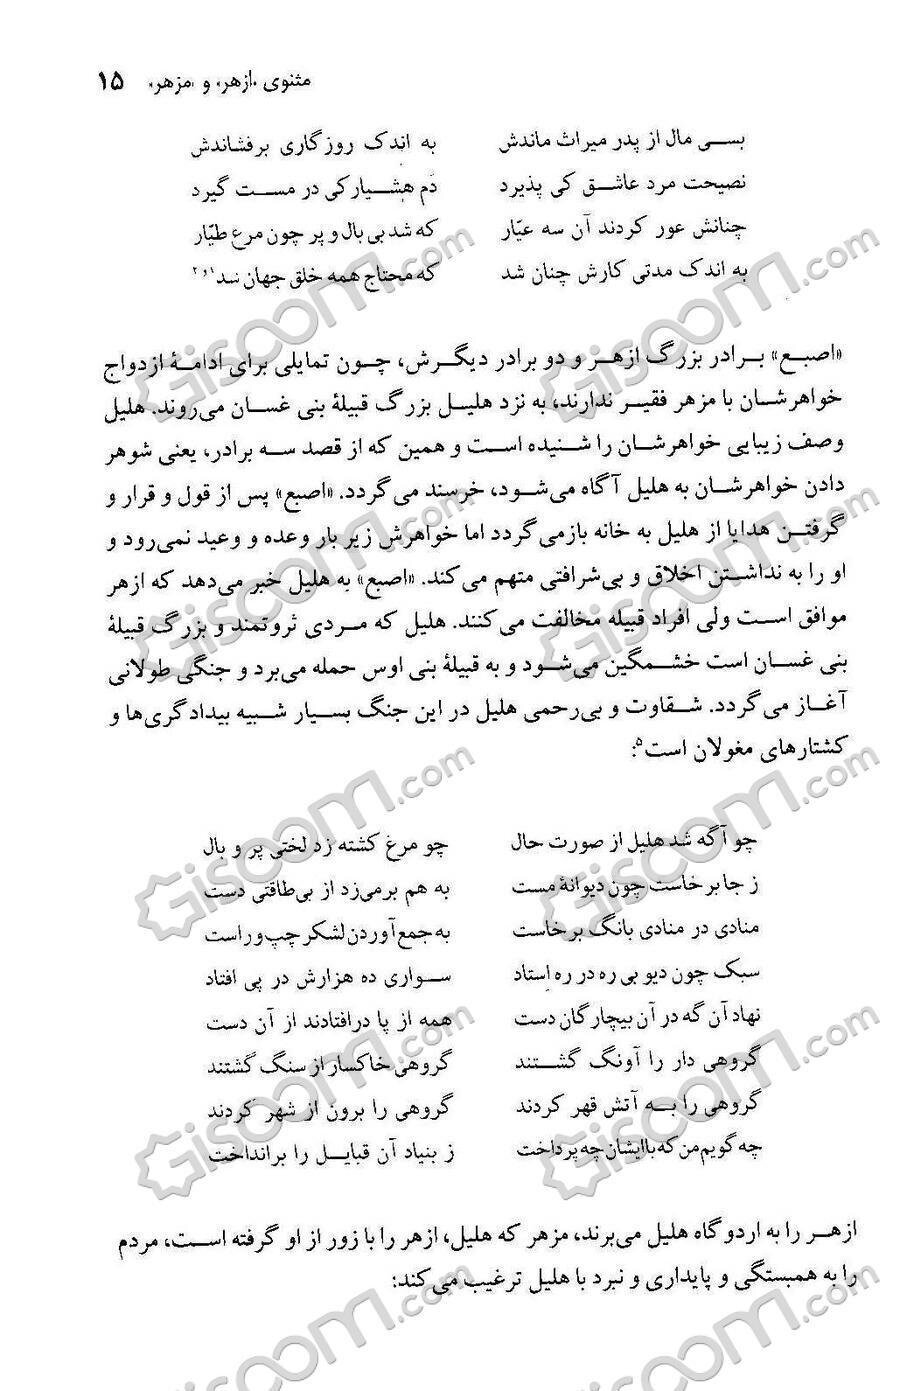 مثنوی «ازهر» و «مزهر» ۱۵
بسی مال از پدر میراث ماندش به اندک روزگاری برفشاندش
نصیحت مرد عاشق کی پذیرد دَم هشیار کی در مست گیرد
چنانش عور کردند آن سه عیّار که شد بی بال و پر چون مرغ طیّار
به اندک مدتی کارش چنان شد که محتاج همه خلق جهان شد
«اصبع» برادر بزرگ ازهر و دو برادر دیگرش، چون تمایلی برای ادامهٔ ازدواج
خواهرشان با مزهر فقیر ندارند، به نزد هلیل بزرگ قبیلهٔ بنی غسان می‌روند. هلیل
وصف زیبایی خواهرشان را شنیده است و همین که از قصد سه برادر، یعنی شوهر
دادن خواهرشان به هلیل آگاه می‌شود، خرسند می‌گردد. «اصبع» پس از قول و قرار و
گرفتن هدایا از هلیل به خانه بازمی‌گردد اما خواهرش زیر بار وعده و وعید نمی‌رود و
او را به نداشتن اخلاق و بی‌شرافتی متهم می‌کند. «اصبع» به هلیل خبر می‌دهد که ازهر
موافق است ولی افراد قبیله مخالفت می‌کنند. هلیل که مردی ثروتمند و بزرگ قبیلهٔ
بنی غسان است خشمگین می‌شود و به قبیلهٔ بنی اوس حمله می‌برد و جنگی طولانی
آغاز می‌گردد. شقاوت و بی‌رحمی هلیل در این جنگ بسیار شبیه بیدادگری‌ها و
کشتارهای مغولان است۵:
چو آگه شد هلیل از صورت حال چو مرغ کشته زد لختی پر و بال
ز جا برخاست چون دیوانهٔ مست به هم برمی‌زد از بی‌طاقتی دست
منادی در منادی بانگ برخاست به جمع آوردن لشکر چپ و راست
سبک چون دیو بی ره در ره اِستاد سواری ده هزارش در پی افتاد
نهاد آن گه در آن بیچارگان دست همه از پا درافتادند از آن دست
گروهی دار را آونگ گشتند گروهی خاکسار از سنگ گشتند
گروهی را به آتش قهر کردند گروهی را برون از شهر کردند
چه گویم من که با ایشان چه پرداخت ز بنیاد آن قبایل را برانداخت
ازهر را به اردوگاه هلیل می‌برند، مزهر که هلیل، ازهر را با زور از او گرفته است، مردم
را به همبستگی و پایداری و نبرد با هلیل ترغیب می‌کند:
Gisoom.com